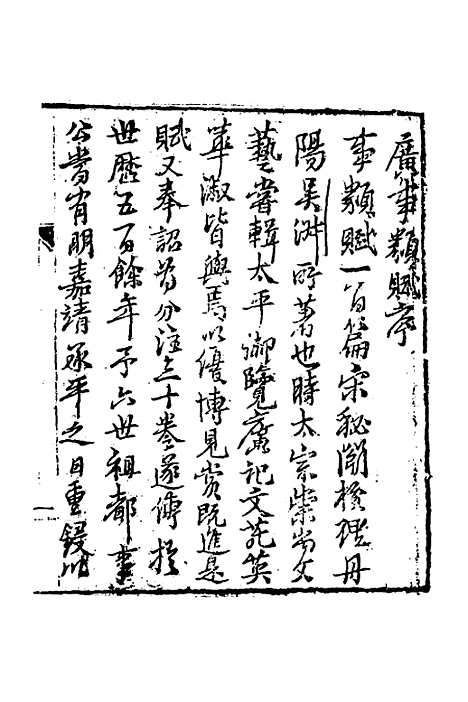 廣事類賦序
事類賦一百篇宋秘閣校理丹
陽吳淑所著也時太宗崇尚文
藝嘗輯太平御覽廣記文苑英
華淑皆與焉以優博見賞既進是
賦又奉詔爲分注三十卷遂傳於
世歷五百餘年予六世祖都事
公當有明嘉靖承平之日重鋟以